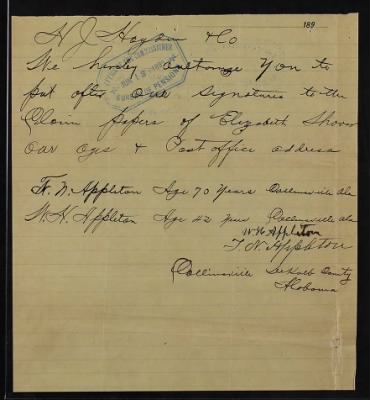 189
H J Hogan & Co
We hereby authorize You to
put after our Signatures to the
Claim papers of Elizabeth Shover
our ages & Post office address
T. N. Appleton Age 70 Years Collinsville Ala
W. H. Appleton Age 42 Collinsville Ala
W H Appleton
T. N. Appleton
Collinsville DeKalb County
Alabama